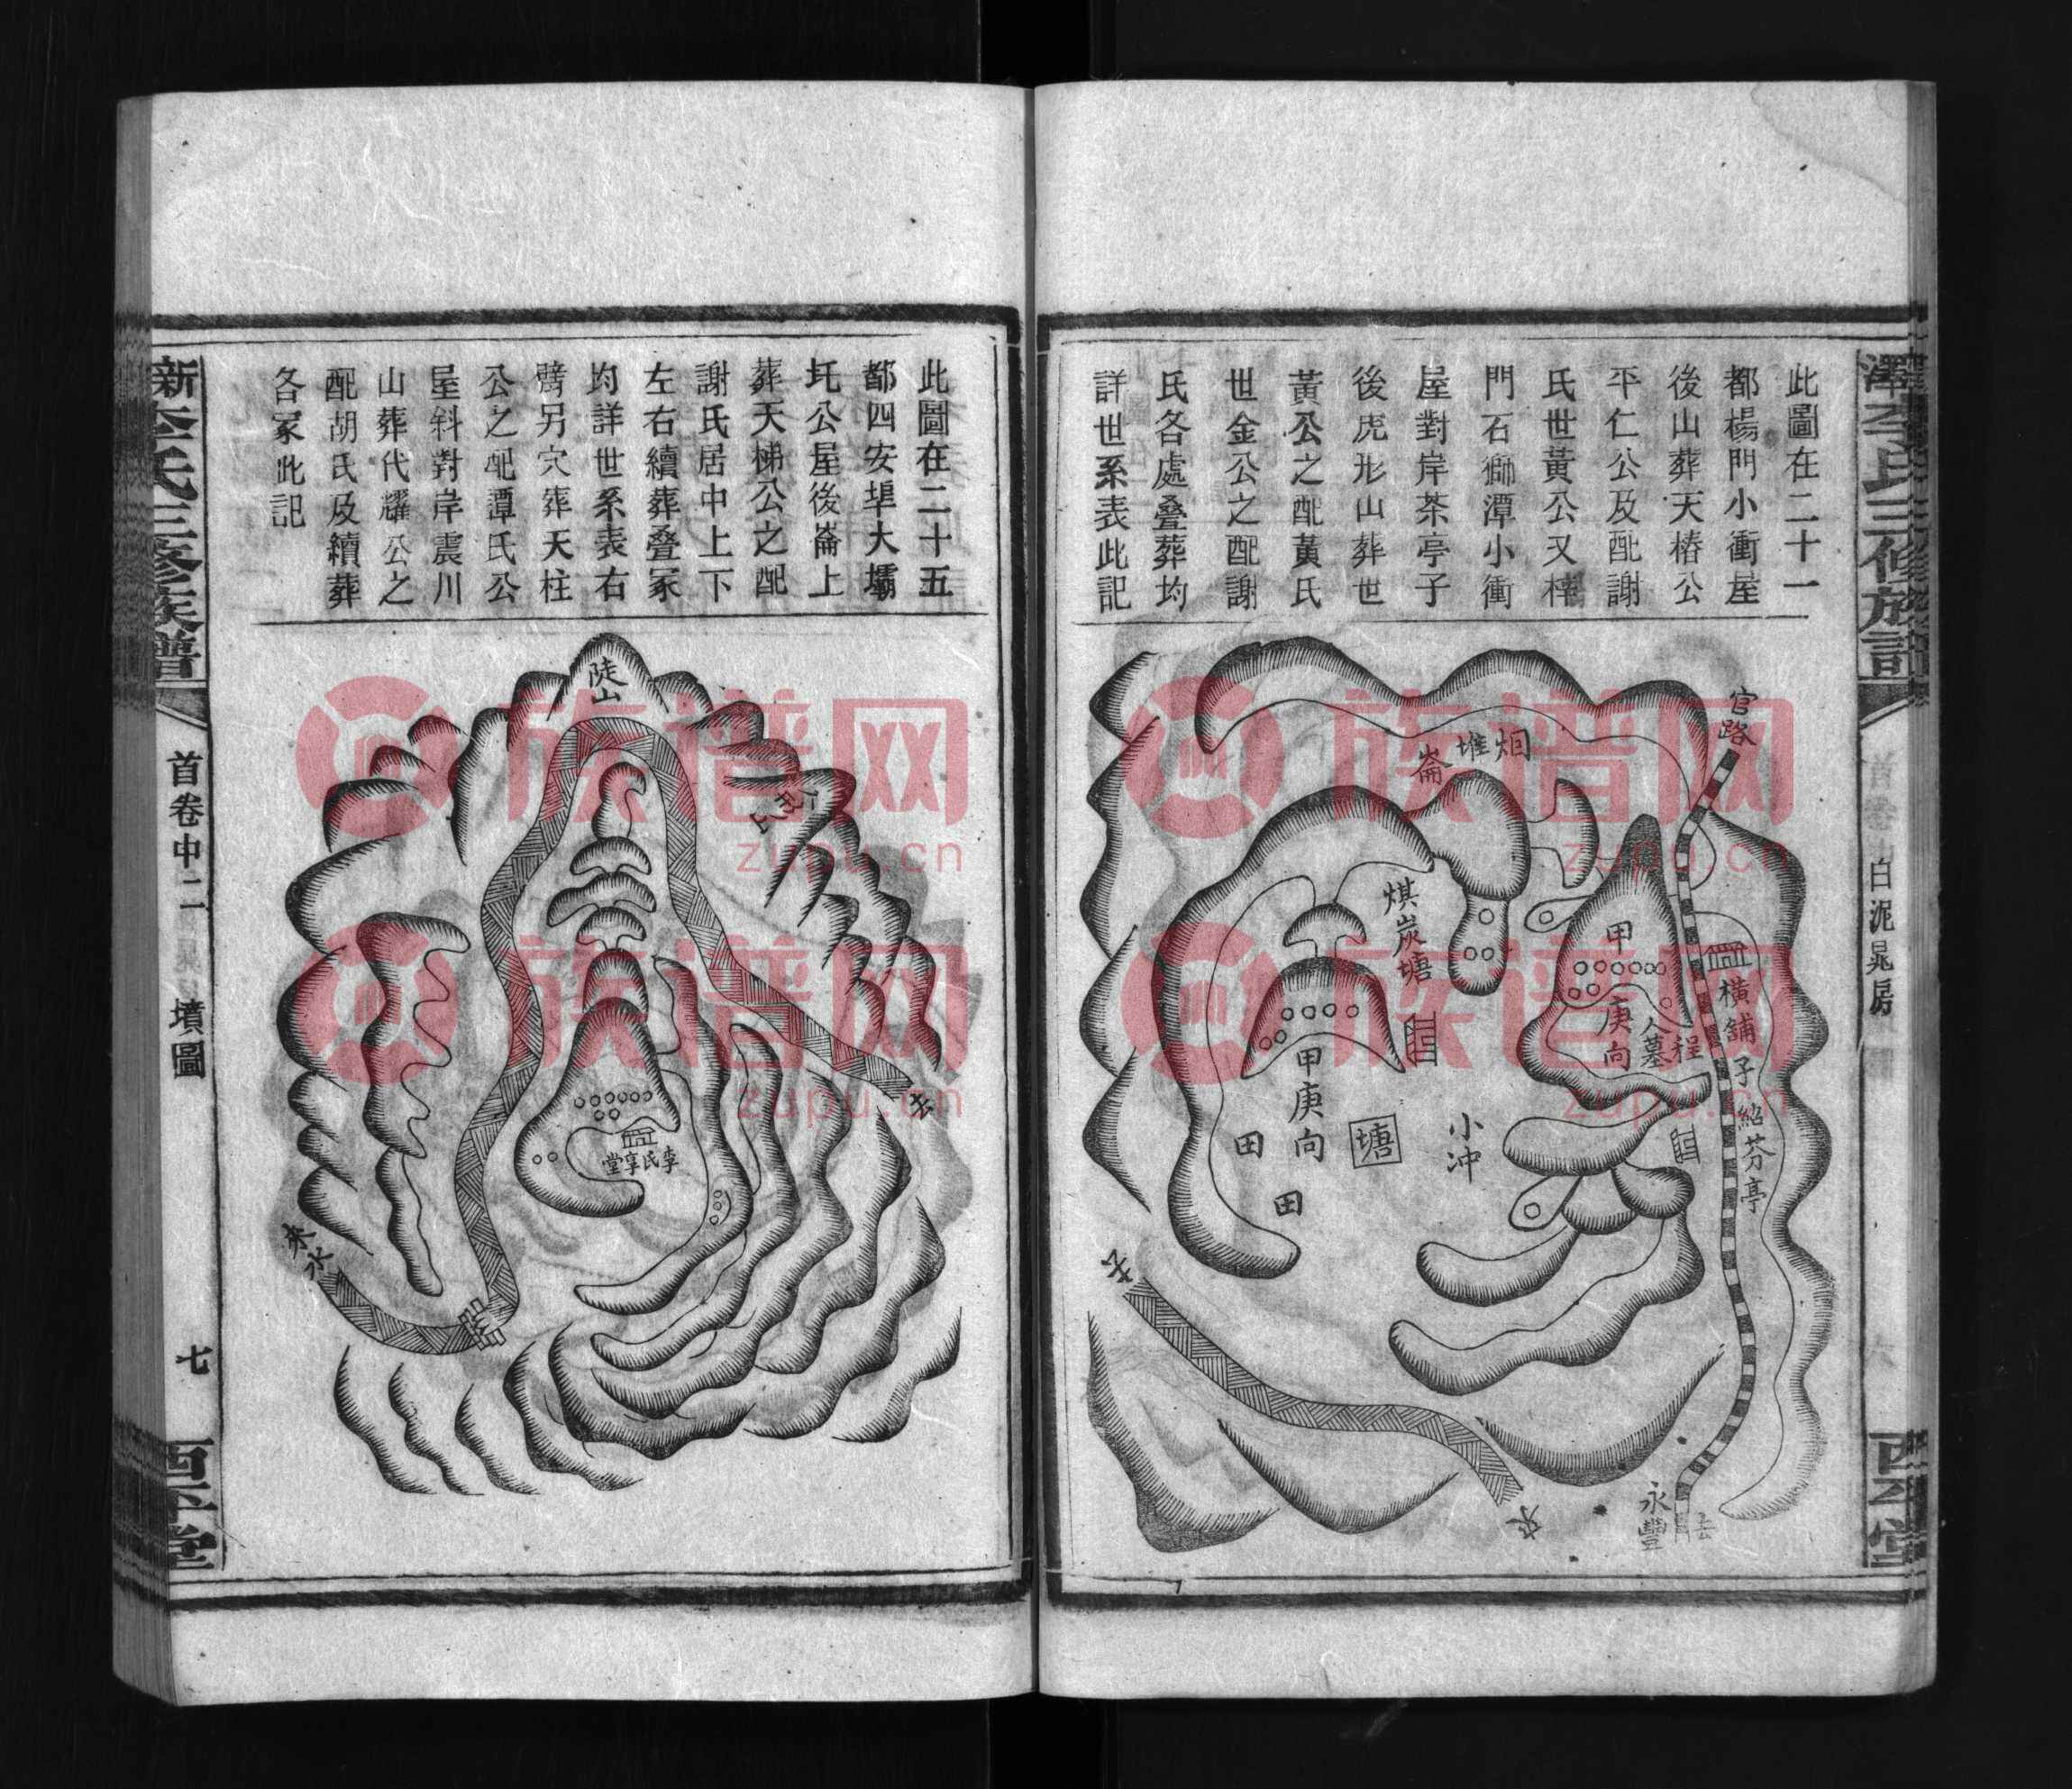 此圖在二十一
都楊門小衝屋
後山葬天椿公
平仁公及配謝
氏世黃公又梓
門石獅潭小衝
屋對岸茶亭子
後虎形山葬世
黃公之配黃氏
世金公之配謝
氏各處叠葬均
詳世系表此記
官路
炬堆崙
煤炭塘
甲
庚向
程人墓
橫舖子
紹芬亭
甲庚向
塘
小沖
田
田
去
來
永豐
去
白泥晃房
三修族譜
西平堂
此圖在二十五
都四安埠大壩
圫公屋後崙上
葬天梯公之配
謝氏居中上下
左右續葬叠冢
均詳世系表右
臂另穴葬天柱
公之配譚氏公
屋斜對岸震川
山葬代耀公之
配胡氏及續葬
各冢此記
陡山
李氏享堂
去
來水
新李氏三修族譜
首卷中二
墳圖
七
西平堂
族谱网
zupu.cn
族谱网
zupu.cn
族谱网
zupu.cn
族谱网
zupu.cn